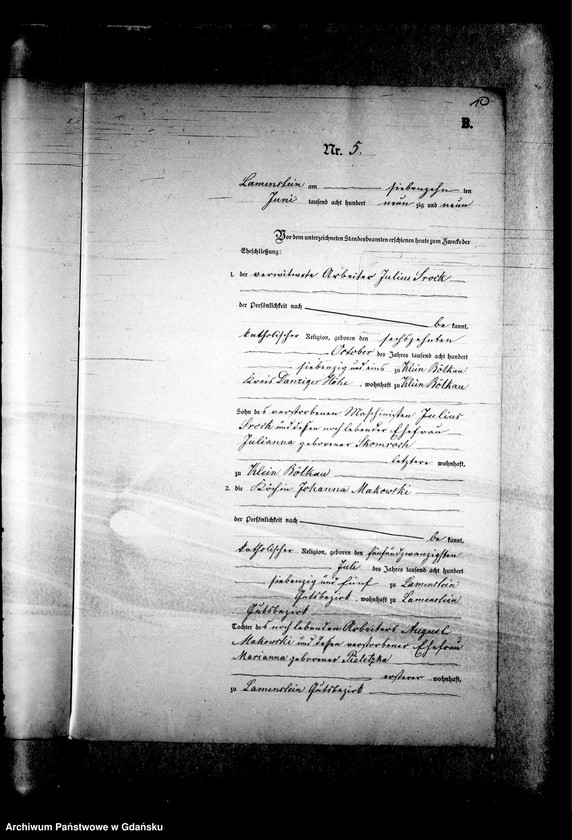 10
B.
Nr. 5.
Lamenstein am siebenzehn ten
Juni tausend acht hundert neun zig und neun
Vor dem unterzeichneten Standesbeamten erschienen heute zum Zwecke der
Eheschließung:
1. der verwitwete Arbeiter Julius Srock
der Persönlichkeit nach
be kannt,
katholischer Religion, geboren den sechszehnten
October des Jahres tausend acht hundert
siebenzig und eins zu Klein Bölkau
Kreis Danziger Höhe, wohnhaft zu Klein Bölkau
Sohn des verstorbenen Maschinisten Julius
Srock und dessen noch lebender Ehefrau
Julianna geborener
letztere wohnhaft,
zu Klein Bölkau
2. die Köchin Johanna Makowski
der Persönlichkeit nach
be kannt,
katholischer Religion, geboren den fünfundzwanzigsten
Juli des Jahres tausend acht hundert
siebenzig und fünf zu Lamenstein
Gutsbezirk, wohnhaft zu Lamenstein
Gutsbezirk
Tochter des noch lebenden Arbeiters August
Makowski und dessen verstorbener Ehefrau
Marianna geborener
ersterer wohnhaft,
zu Lamenstein Gutsbezirk
Archiwum Państwowe w Gdańsku